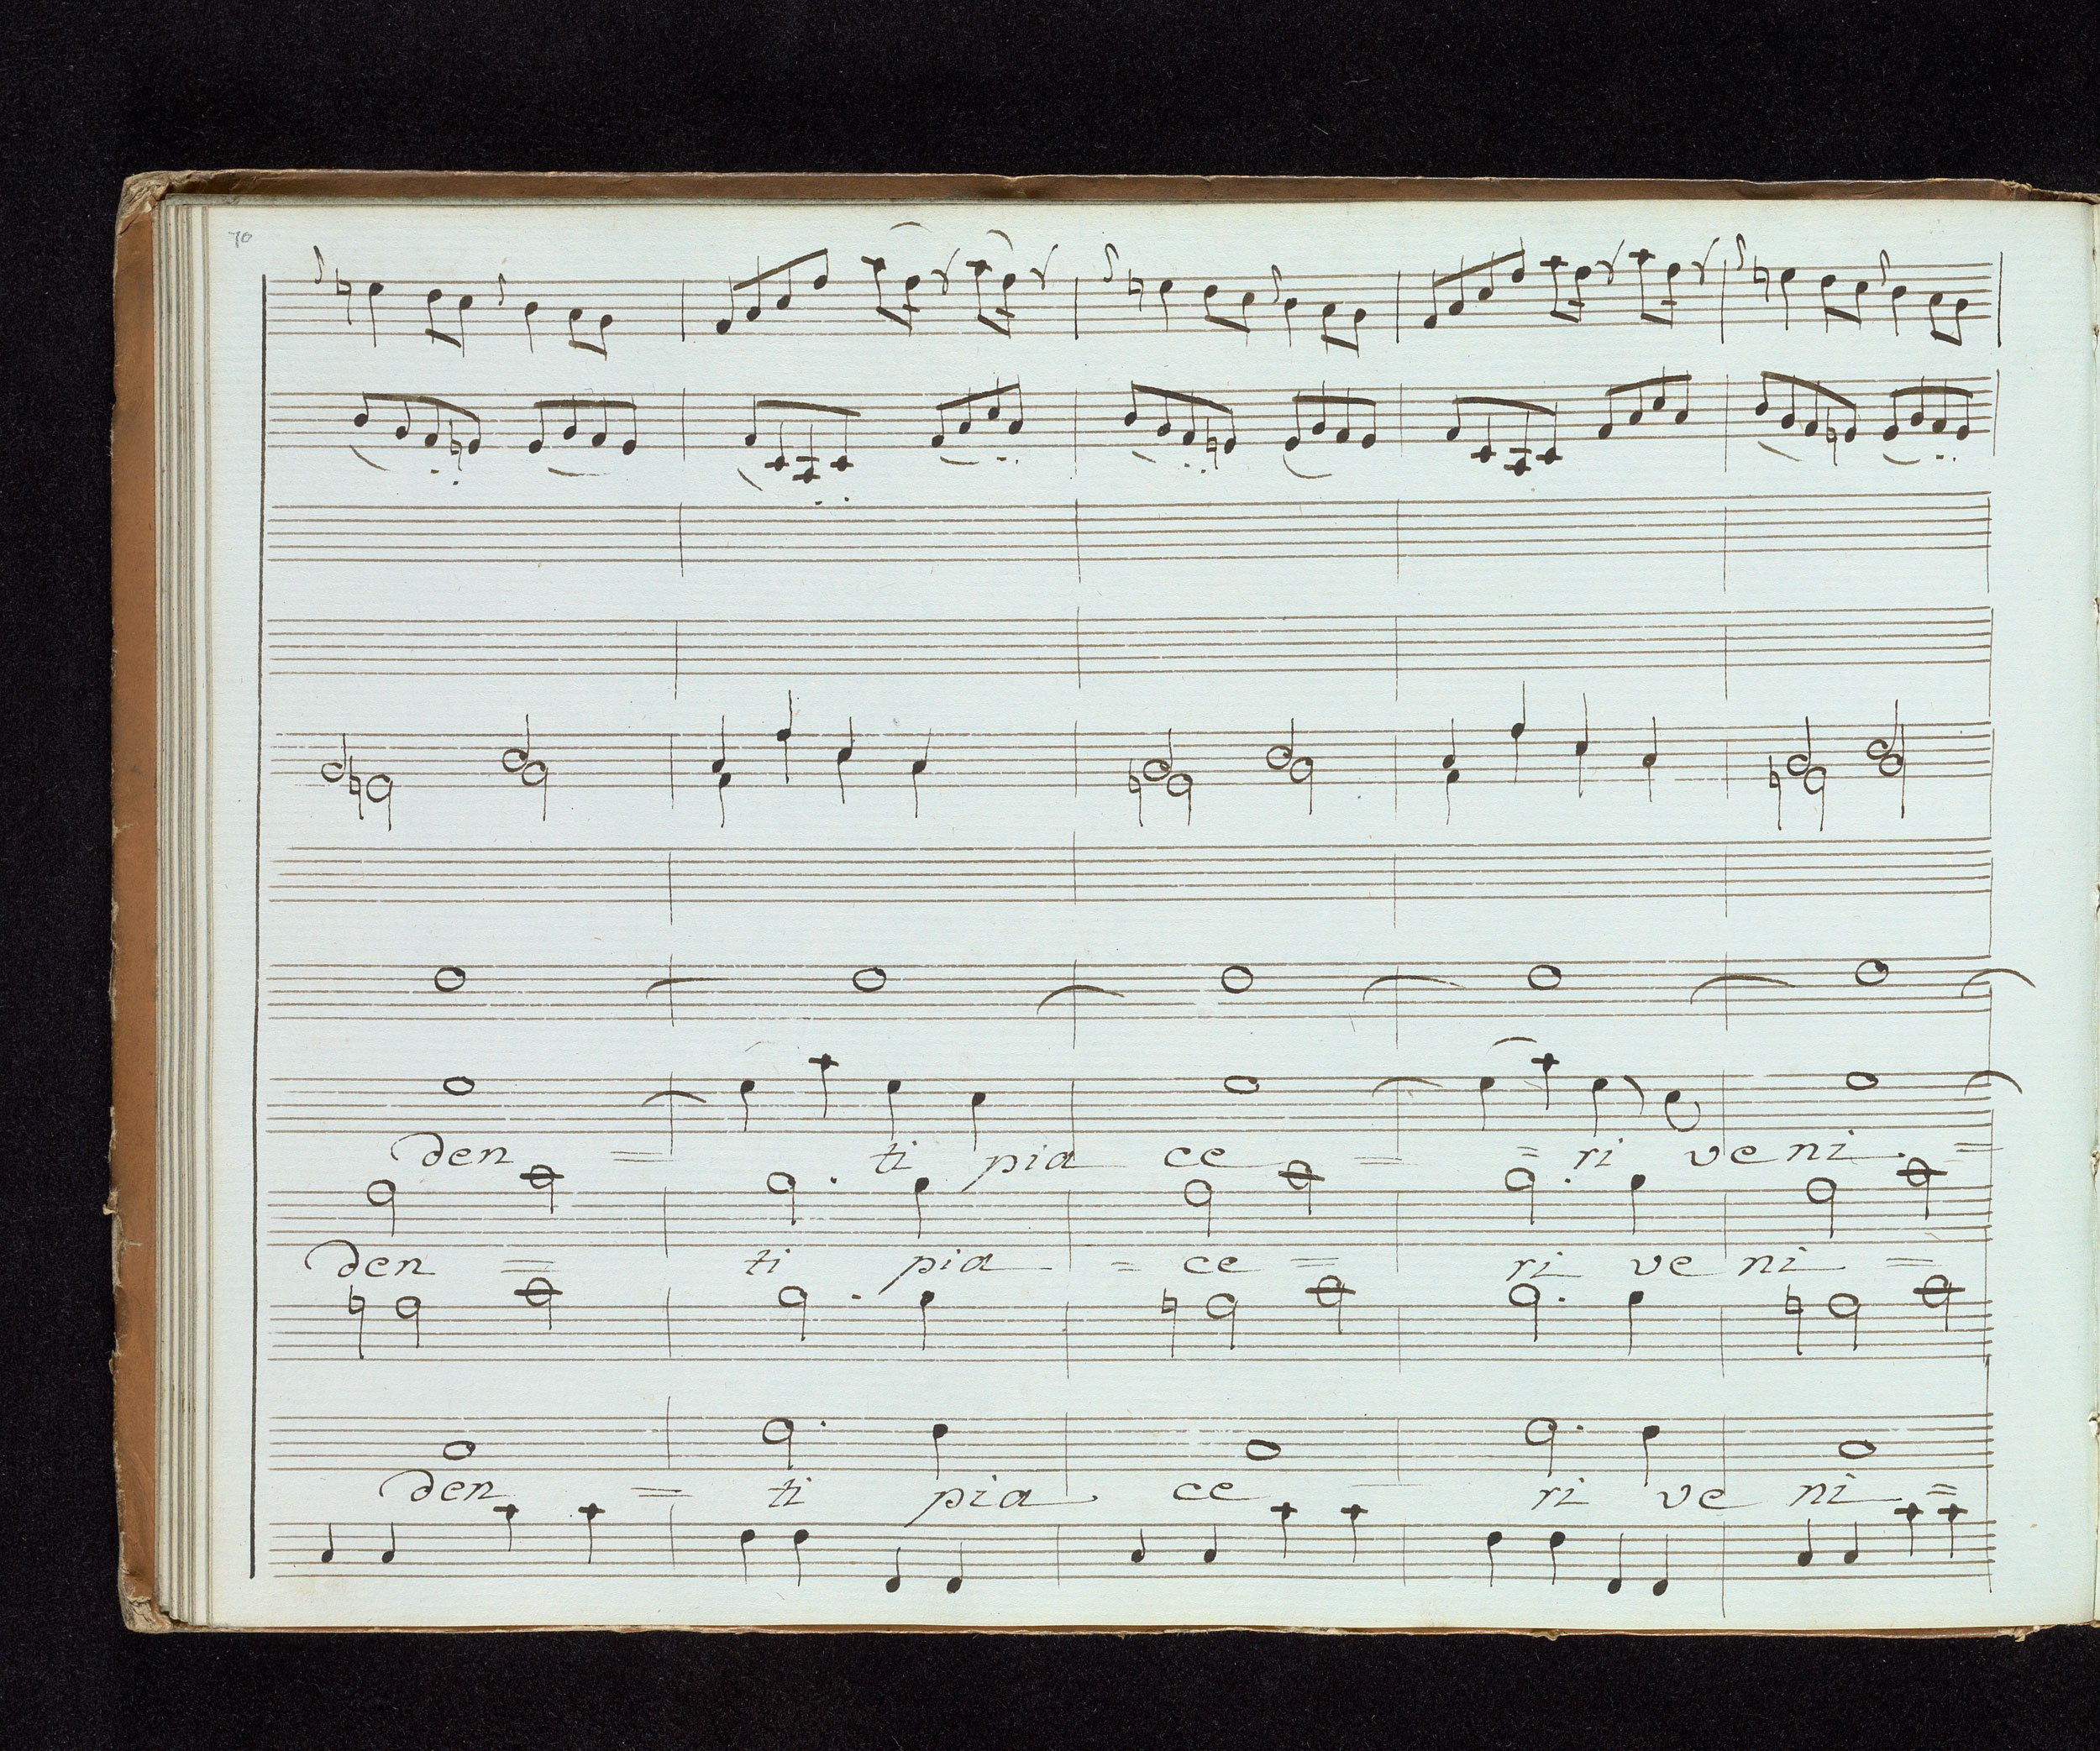 70
den = ti pia ce = = ri ve ni =
den = ti pia = ce = ri ve ni =
den = ti pia ce ri ve ni =